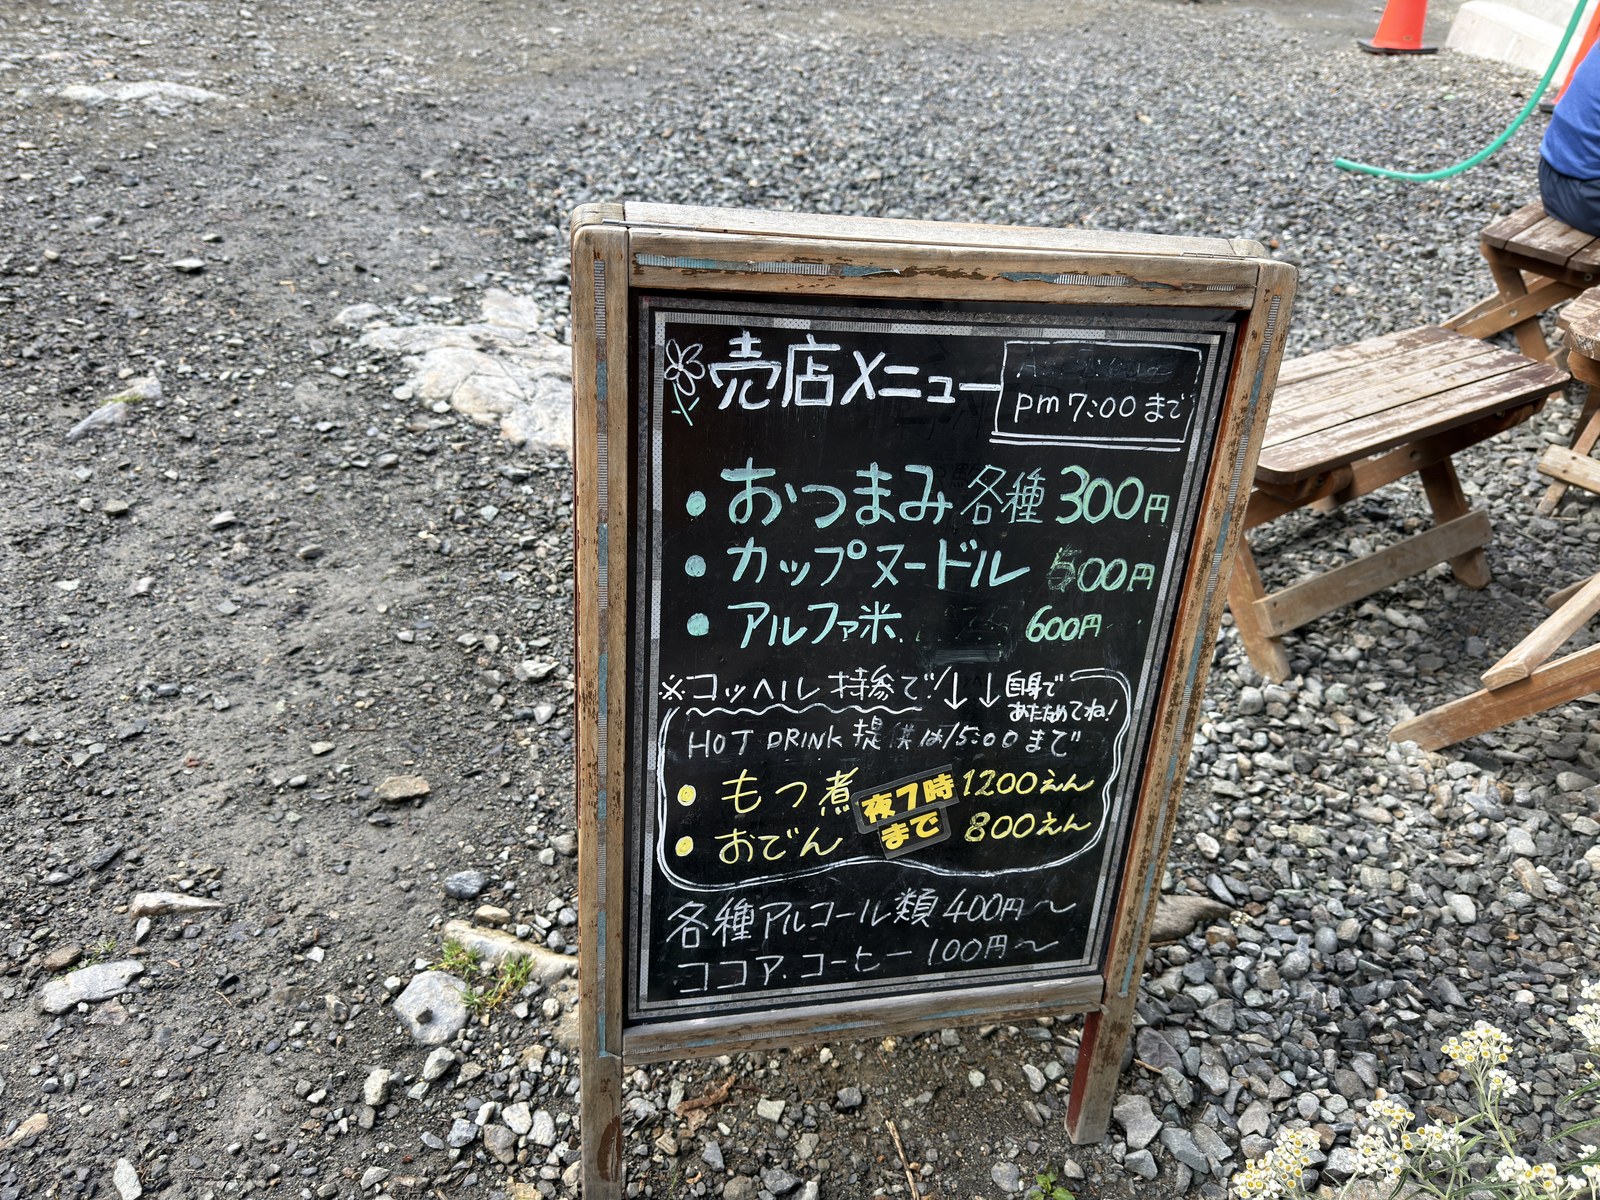 売店メニュー
pm 7:00 まで
・おつまみ各種 300円
・カップヌードル 500円
・アルファ米 600円
※コッヘル持参で!↓↓ 自身で
あたためてね!
HOT DRINK 提供は15:00まで
・もつ煮 1200えん
夜7時
まで
・おでん 800えん
各種アルコール類 400円〜
ココア.コーヒー 100円〜